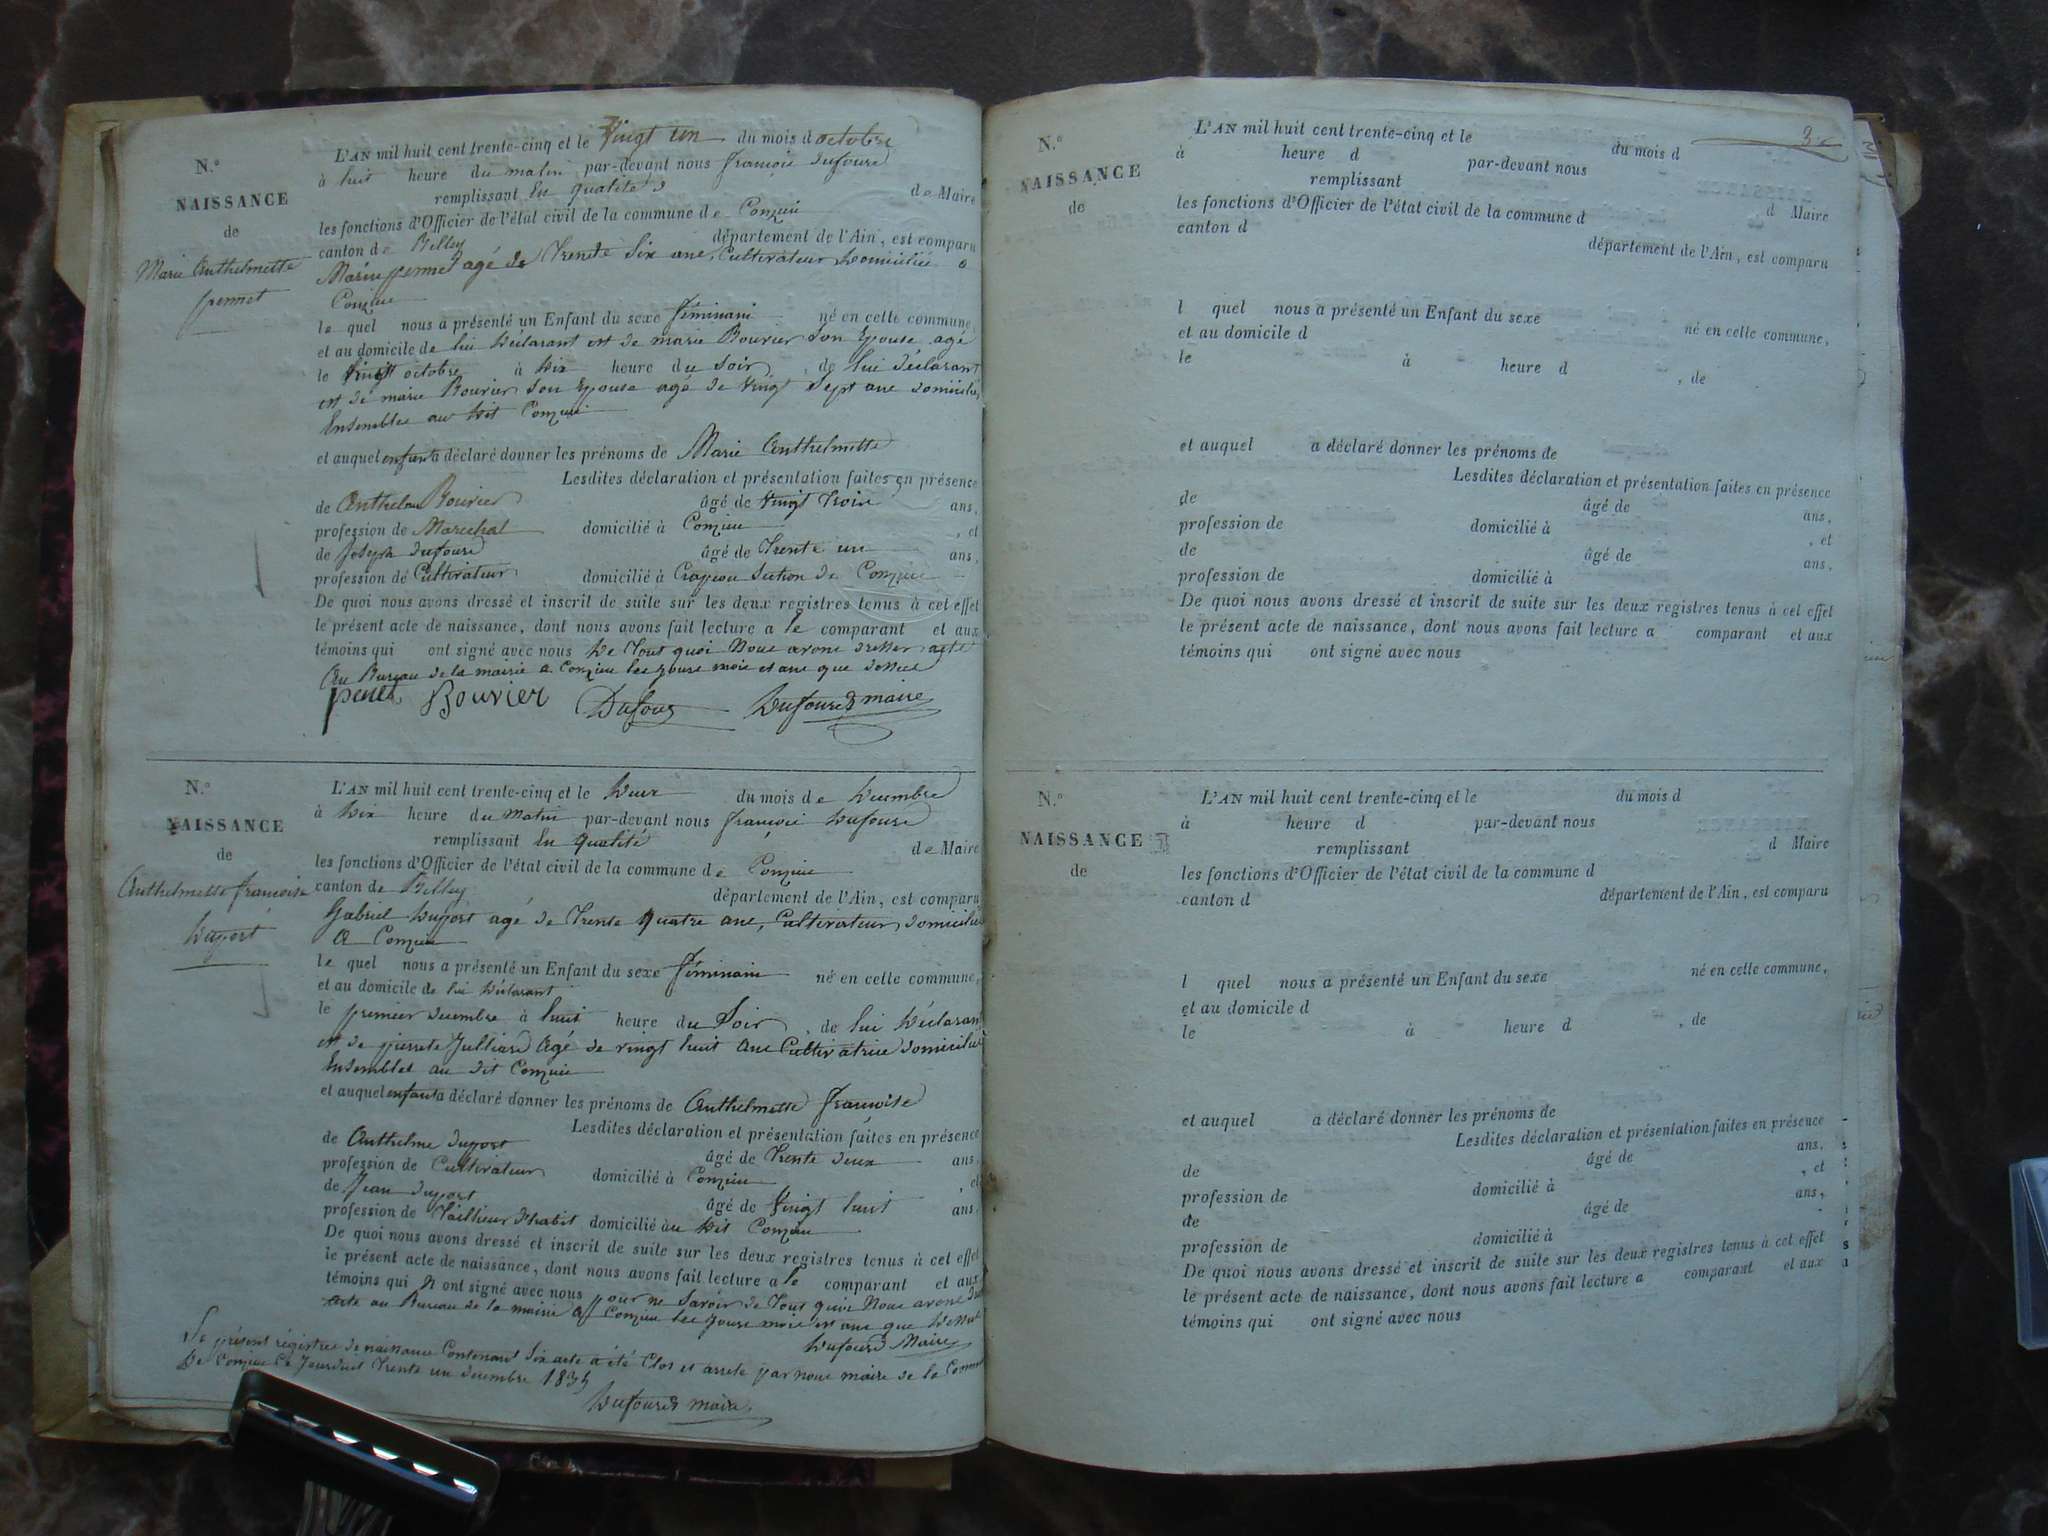 N.º
NAISSANCE
de
Marie Anthelmette
pennet
L'AN mil huit cent trente-cinq et le vingt un du mois d octobre
à huit heure du matin par-devant nous françois dufourd
remplissant En qualité de Maire
les fonctions d'Officier de l'état civil de la commune de Conzieu
canton de Belley département de l'Ain, est comparu
pennet agé de Trente six ans, Cultivateur Domicilié a
Conzieu
le quel nous a présenté un Enfant du sexe féminain né en cette commune,
et au domicile de lui Déclarant et de marie Bouvier son Epouse agé
le vingt octobre à Dix heure du soir, de lui déclarant
et de marie Bouvier son Epouse agé de vingt sept ans domicilié
Ensembles au dit Conzieu
et auquel enfant a déclaré donner les prénoms de Marie Anthelmette
Lesdites déclaration et présentation faites en présence
de Anthelme Bouvier âgé de vingt trois ans,
profession de Marechal domicilié à Conzieu, et
de Joseph dufourd âgé de Trente un ans,
profession de Cultivateur domicilié à Crapeou section de Conzieu
De quoi nous avons dressé et inscrit de suite sur les deux registres tenus à cet effet
le présent acte de naissance, dont nous avons fait lecture a le comparant et aux
témoins qui ont signé avec nous De Tout quoi Nous avons dresser acte
Au Bureau de la mairie a Conzieu les jours mois et ans que dessus
penet Bouvier Dufour Dufourd maire
N.º
NAISSANCE
de
Anthelmette françoise
Duport
L'AN mil huit cent trente-cinq et le Deux du mois de Décembre
à Dix heure du Matin par-devant nous françois Dufourd
remplissant En qualité de Maire
les fonctions d'Officier de l'état civil de la commune de Conzieu
canton de Belley département de l'Ain, est comparu
Gabriel Duport agé de Trente quatre ans, Cultivateur domicilié
a Conzieu
le quel nous a présenté un Enfant du sexe féminain né en cette commune,
et au domicile de lui Déclarant
le premier decembre à huit heure du Soir, de lui Déclarant
et de pierrete Julliard Agé de vingt huit ans Cultivatrice domicilié
Ensembles au dit Conzieu
et auquel enfant a déclaré donner les prénoms de Anthelmette françoise
Lesdites déclaration et présentation faites en présence
de Anthelme duport âgé de Trente deux ans,
profession de Cultivateur domicilié à Conzieu, et
de Jean duport âgé de vingt huit ans,
profession de Tailleur d'habit domicilié au dit Conzieu
De quoi nous avons dressé et inscrit de suite sur les deux registres tenus à cet effet
le présent acte de naissance, dont nous avons fait lecture a le comparant et aux
témoins qui n ont signé avec nous pour ne savoir de Tout quoi Nous avons
acte au Bureau de la mairie a Conzieu les jours mois et ans que dessus
Dufourd Maire
Le présent régistre de naissance Contenant Six acte a été Clos et arrete par nous maire de la Commune
De Conzieu Ce Jourdui Trente un decembre 1835
Dufourd maire
3
N.º
NAISSANCE
de
L'AN mil huit cent trente-cinq et le du mois d
à heure d par-devant nous
remplissant d Maire
les fonctions d'Officier de l'état civil de la commune d
canton d département de l'Ain, est comparu
l quel nous a présenté un Enfant du sexe né en cette commune,
et au domicile d
le à heure d , de
et auquel a déclaré donner les prénoms de
Lesdites déclaration et présentation faites en présence
de âgé de ans,
profession de domicilié à , et
de âgé de ans,
profession de domicilié à
De quoi nous avons dressé et inscrit de suite sur les deux registres tenus à cet effet
le présent acte de naissance, dont nous avons fait lecture a comparant et aux
témoins qui ont signé avec nous
N.º
NAISSANCE
de
L'AN mil huit cent trente-cinq et le du mois d
à heure d par-devant nous
remplissant d Maire
les fonctions d'Officier de l'état civil de la commune d
canton d département de l'Ain, est comparu
l quel nous a présenté un Enfant du sexe né en cette commune,
et au domicile d
le à heure d , de
et auquel a déclaré donner les prénoms de
Lesdites déclaration et présentation faites en présence
de âgé de ans,
profession de domicilié à , et
de âgé de ans,
profession de domicilié à
De quoi nous avons dressé et inscrit de suite sur les deux registres tenus à cet effet
le présent acte de naissance, dont nous avons fait lecture a comparant et aux
témoins qui ont signé avec nous